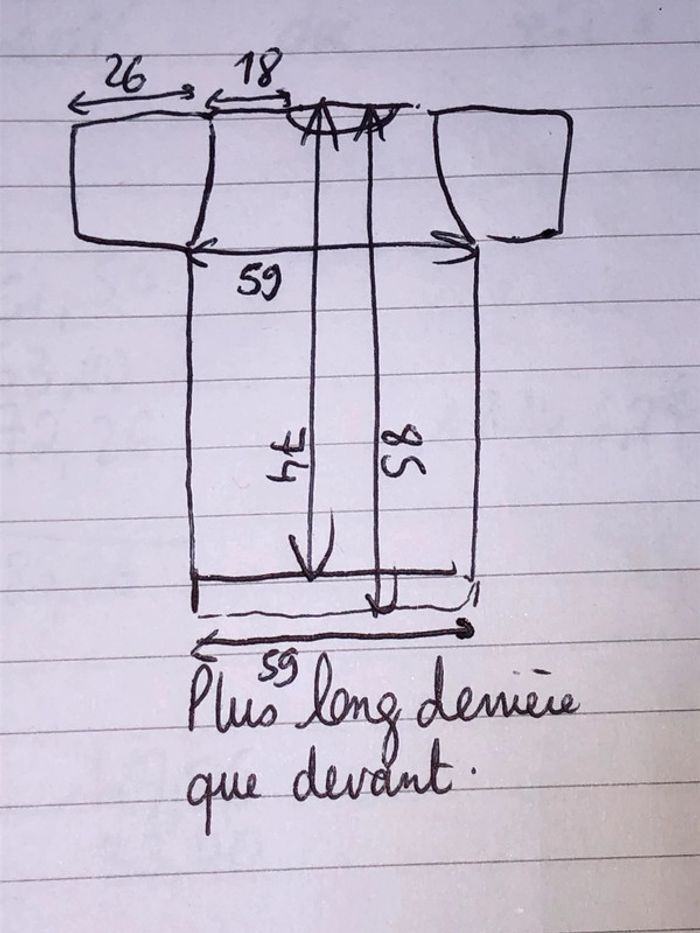 26 18
59
74
85
59
Plus long derrière
que devant.